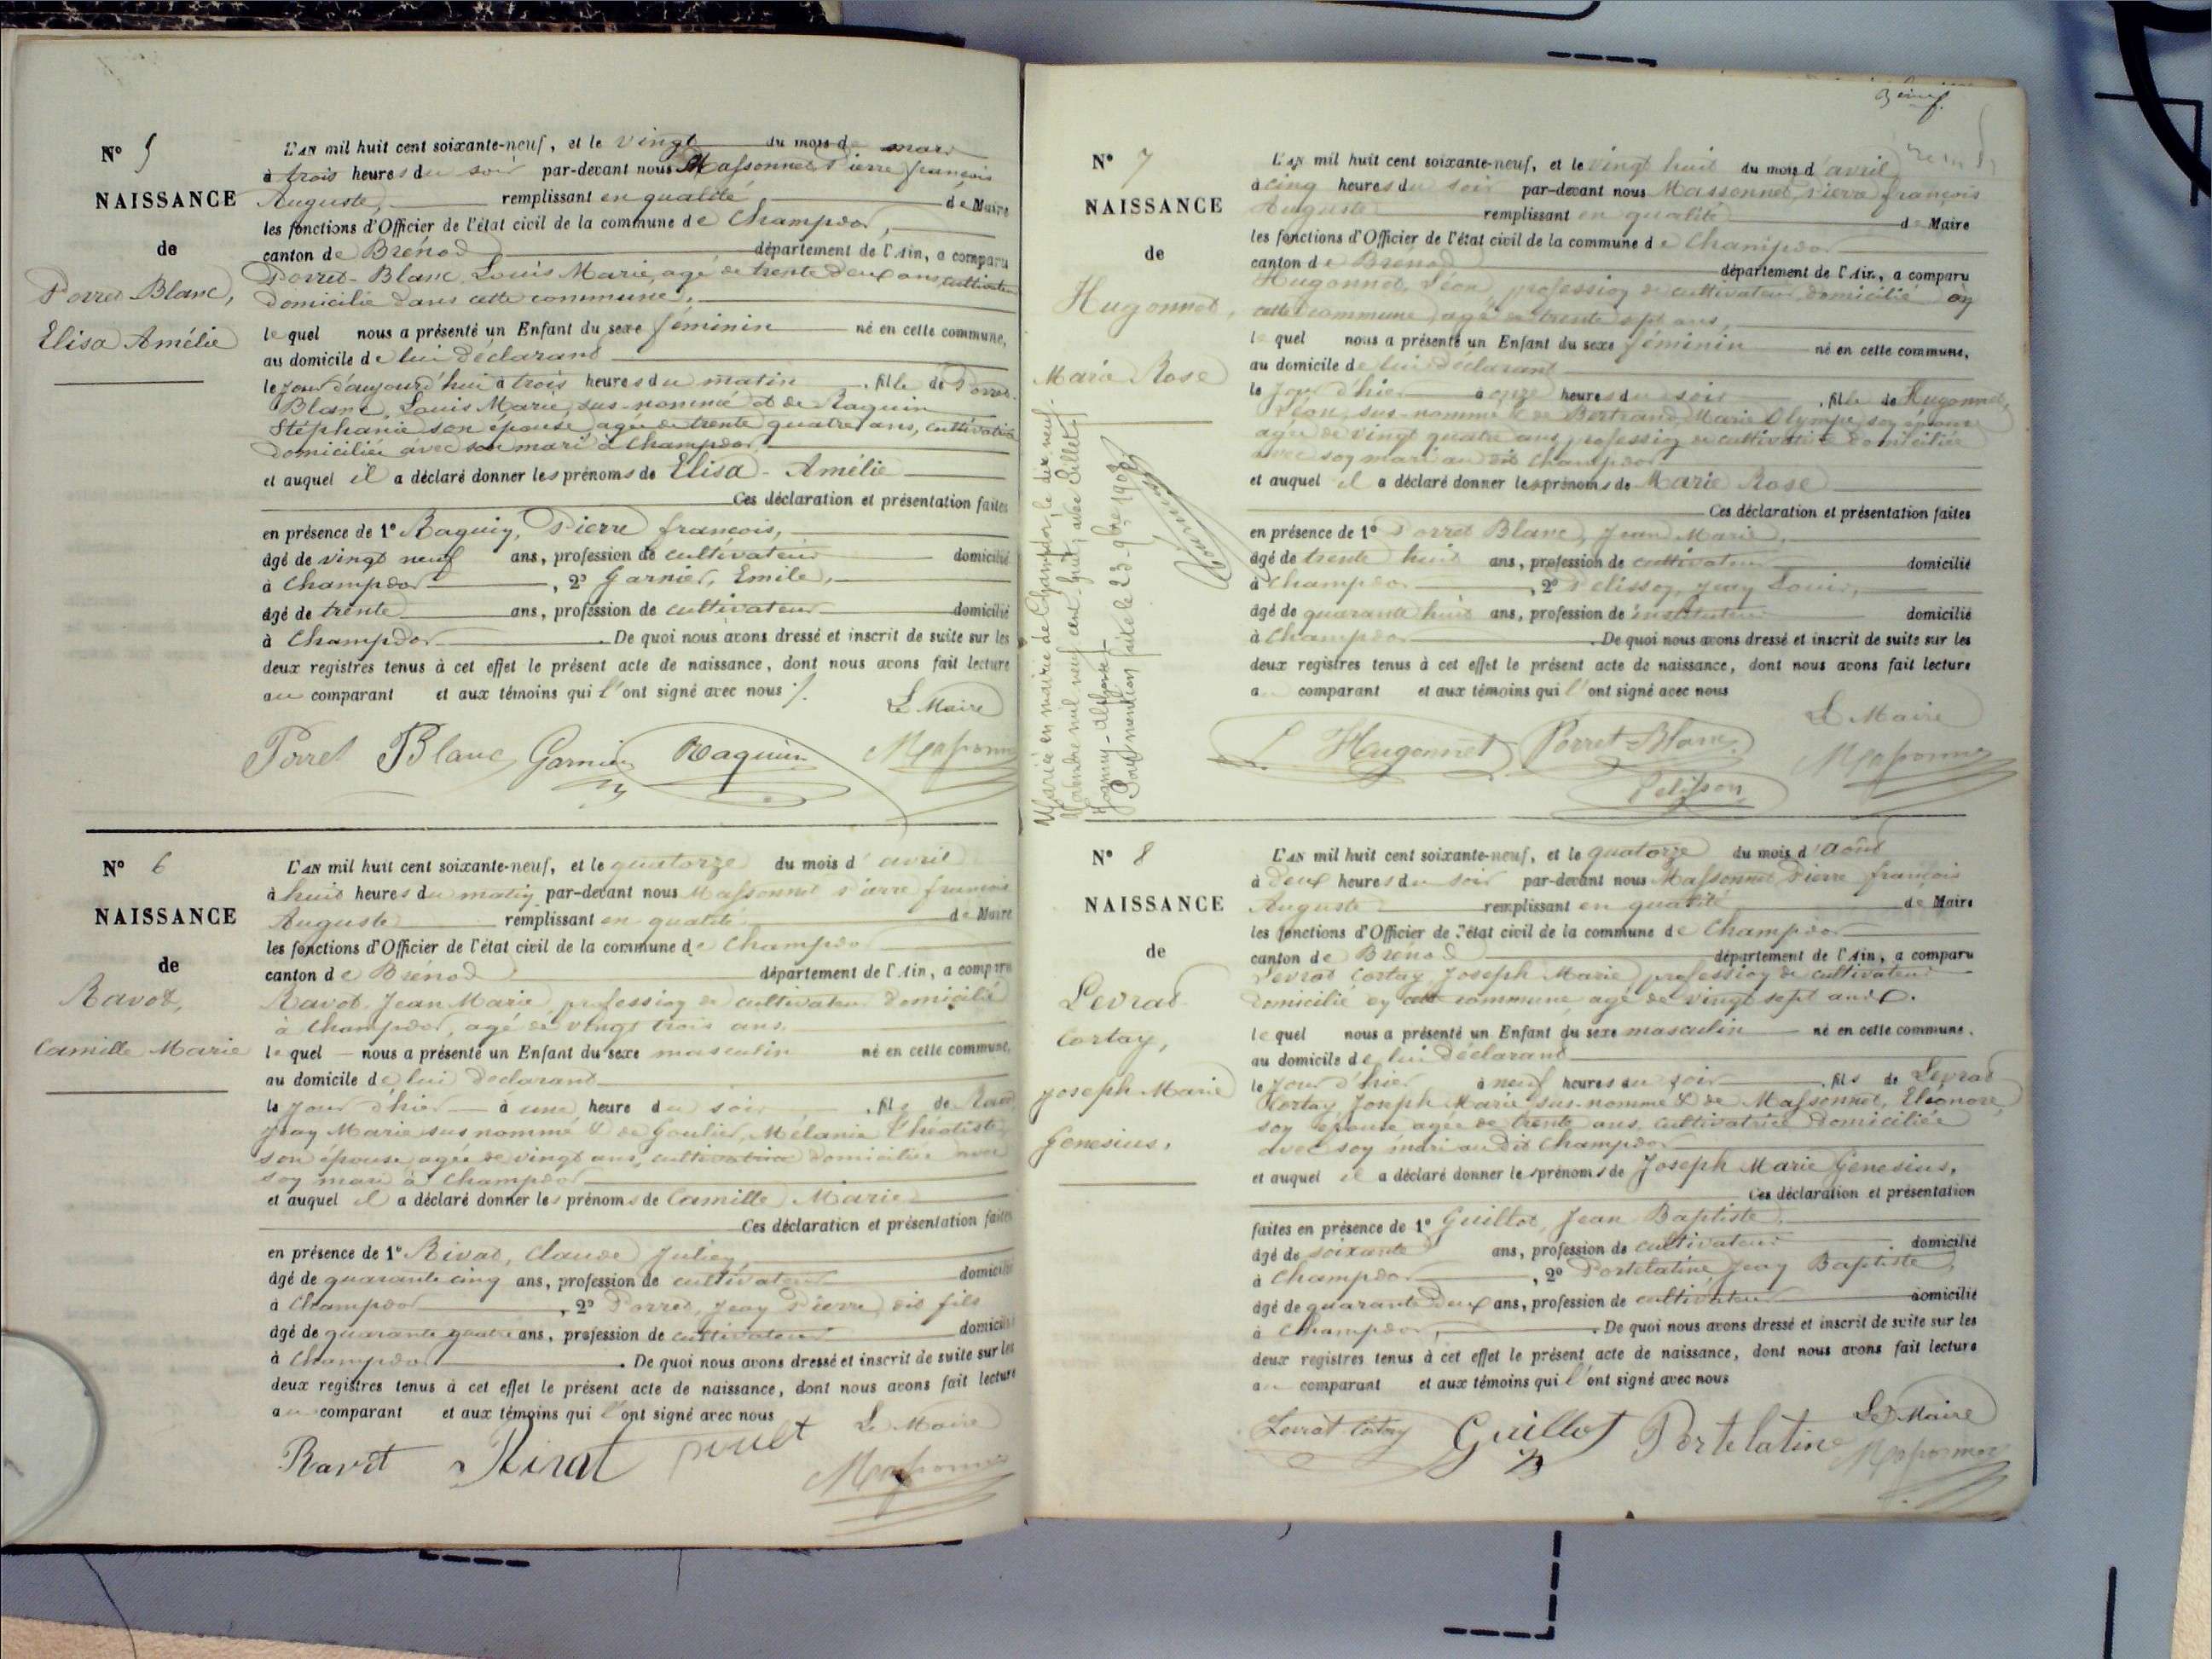 N° 5
NAISSANCE
de
Porret Blanc,
Elisa Amélie
L'AN mil huit cent soixante-neuf, et le vingt du mois de mars
à trois heures du soir par-devant nous Massonnet Pierre françois
Auguste, remplissant en qualité de Maire
les fonctions d'Officier de l'état civil de la commune de Champdor,
canton de Brénod département de l'Ain, a comparu
Porret-Blanc, Louis Marie, agé de trente deux ans, cultivateur
domicilié dans cette commune,
lequel nous a présenté un Enfant du sexe féminin né en cette commune,
au domicile de lui déclarant
le jour d'aujourd'hui à trois heures du matin, fille de Porret
Blanc, Louis Marie, sus-nommé et de Raquin
Stéphanie son épouse, agée de trente quatre ans, cultivatrice
domiciliée avec son mari à Champdor,
et auquel il a déclaré donner les prénoms de Elisa-Amélie
Ces déclaration et présentation faites
en présence de 1° Raquin, Pierre françois,
âgé de vingt neuf ans, profession de cultivateur domicilié
à Champdor, 2° Garnier, Emile,
âgé de trente ans, profession de cultivateur domicilié
à Champdor. De quoi nous avons dressé et inscrit de suite sur les
deux registres tenus à cet effet le présent acte de naissance, dont nous avons fait lecture
au comparant et aux témoins qui l'ont signé avec nous
Le Maire
Porret Blanc Garnier Raquin Massonnet
N° 6
NAISSANCE
de
Ravot,
Camille Marie
L'AN mil huit cent soixante-neuf, et le quatorze du mois d'avril
à huit heures du matin par-devant nous Massonnet Pierre françois
Auguste remplissant en qualité de Maire
les fonctions d'Officier de l'état civil de la commune de Champdor
canton de Brénod département de l'Ain, a comparu
Ravot, Jean Marie, profession de cultivateur domicilié
à Champdor, agé de vingt trois ans,
lequel nous a présenté un Enfant du sexe masculin né en cette commune,
au domicile de lui déclarant
le jour d'hier à une heure du soir, fils de Ravot
Jean Marie sus nommé & de Goulier, Mélanie Théotiste
son épouse agée de vingt ans, cultivatrice domiciliée avec
son mari à Champdor
et auquel il a déclaré donner les prénoms de Camille Marie
Ces déclaration et présentation faites
en présence de 1° Rivat, Claude Julien
âgé de quarante cinq ans, profession de cultivateur domicilié
à Champdor, 2° Porret, Jean Pierre, dit fils
âgé de quarante quatre ans, profession de cultivateur domicilié
à Champdor. De quoi nous avons dressé et inscrit de suite sur les
deux registres tenus à cet effet le présent acte de naissance, dont nous avons fait lecture
au comparant et aux témoins qui l'ont signé avec nous
Le Maire
Ravot Rivat Massonnet
N° 7
NAISSANCE
de
Hugonnet,
Marie Rose
Mariée en mairie de Champdor, le dix neuf
Novembre mil neuf cent huit, avec Billet
Joanny-Alphonse.
Pour mention faite le 23 9bre 1908
L'AN mil huit cent soixante-neuf, et le vingt huit du mois d'avril
à cinq heures du soir par-devant nous Massonnet, Pierre françois
Auguste remplissant en qualité de Maire
les fonctions d'Officier de l'état civil de la commune de Champdor
canton de Brénod département de l'Ain, a comparu
Hugonnet, Léon, profession de cultivateur, domicilié en
cette commune, agé de trente sept ans,
lequel nous a présenté un Enfant du sexe féminin né en cette commune,
au domicile de lui déclarant
le jour d'hier à onze heures du soir, fille de Hugonnet,
Léon, sus-nommé & de Bertrand Marie Olympe, son épouse
agée de vingt quatre ans, profession de cultivatrice domiciliée
avec son mari au dit Champdor
et auquel il a déclaré donner les prénoms de Marie Rose
Ces déclaration et présentation faites
en présence de 1° Porret Blanc, Jean Marie,
âgé de trente huit ans, profession de cultivateur domicilié
à Champdor, 2° Pelisson, Jean Louis,
âgé de quarante huit ans, profession de instituteur domicilié
à Champdor. De quoi nous avons dressé et inscrit de suite sur les
deux registres tenus à cet effet le présent acte de naissance, dont nous avons fait lecture
a comparant et aux témoins qui l'ont signé avec nous
Le Maire
L Hugonnet Porret-Blanc Massonnet
Pelisson
N° 8
NAISSANCE
de
Levrat
Cortay,
Joseph Marie
Genesius,
L'AN mil huit cent soixante-neuf, et le quatorze du mois d'août
à deux heures du soir par-devant nous Massonnet, Pierre françois
Auguste remplissant en qualité de Maire
les fonctions d'Officier de l'état civil de la commune de Champdor
canton de Brénod département de l'Ain, a comparu
Levrat Cortay, Joseph Marie, profession de cultivateur
domicilié en cette commune, agé de vingt sept ans.
lequel nous a présenté un Enfant du sexe masculin né en cette commune,
au domicile de lui déclarant
le jour d'hier à neuf heures du soir, fils de Levrat
Cortay, Joseph Marie, sus-nommé & de Massonnet, Eléonore,
son épouse agée de trente ans, cultivatrice domiciliée
avec son mari au dit Champdor
et auquel il a déclaré donner les prénoms de Joseph Marie Genesius,
Ces déclaration et présentation
faites en présence de 1° Guillot, Jean Baptiste,
âgé de soixante ans, profession de cultivateur domicilié
à Champdor, 2° Portelatine, Jean Baptiste,
âgé de quarante deux ans, profession de cultivateur domicilié
à Champdor, De quoi nous avons dressé et inscrit de suite sur les
deux registres tenus à cet effet le présent acte de naissance, dont nous avons fait lecture
au comparant et aux témoins qui l'ont signé avec nous
Le Maire
Levrat-Cortay Guillot Portelatine Massonnet